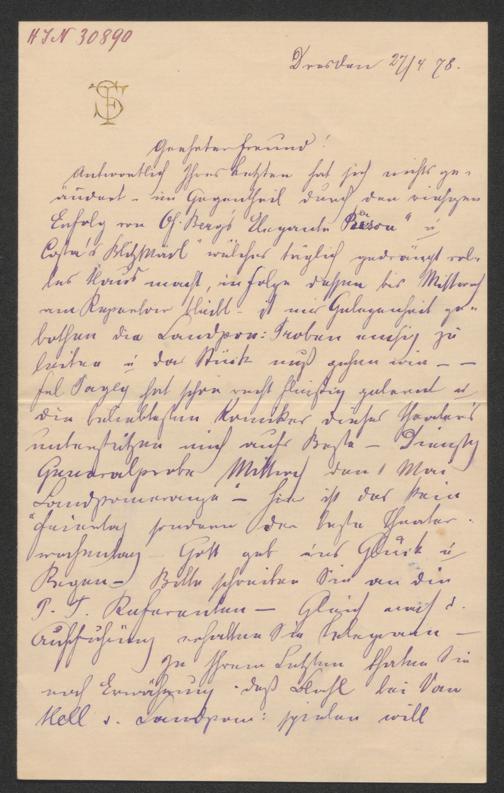 HIN 30890
Dresden 27/4 78.
Geehrter Freund!
Antwortlich Ihres Letzten hat sich nichts ge-
ändert – im Gegentheil durch den riesigen
Erfolg von O. F. Berg's Elegante Person" u
Costa's Blitzmädl" welches täglich gedrängt vol-
les Haus macht, in Folge dessen bis Mittwoch
am Repertoir bleibt – ist mir Gelegenheit ge-
bothen die Landpom: Proben emsig zu
leiten u das Stück muß gehen wie – –
Frl hat schon recht fleißig gelernt u
die beliebtesten Komiker dieses Theaters
unterstützen mich aufs Beste – Dienstg
Generalprobe Mittwoch den 1 Mai
Landpomeranze – hier ist das kein
Feiertag sondern der beste Theater-
wochentag – Gott geb uns Glück u
Regen – Bitte schreiben Sie an die
P. T. Referenten – Gleich nach d.
Aufführung erhalten Sie Telegram –
In Ihrem Letzten thaten Sie
noch Erwähnung daß bei Van
Hell d. Landpom: spielen will